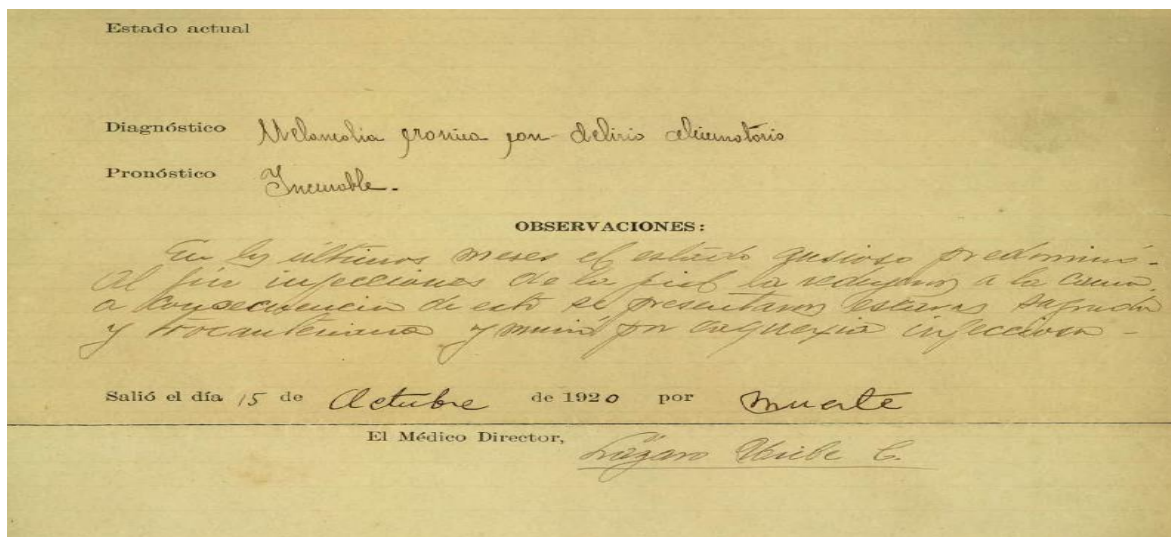 Estado actual
Diagnóstico Melancolia cronica con delirio alucinatorio
Pronóstico Incurable.
OBSERVACIONES:
En los últimos meses el estado ansioso predominó.
Al fin infecciones de la piel la redujeron a la cama,
a consecuencia de esto se presentaron escaras sagrada
y trocanteriana y murió por caquexia infecciosa -
Salió el día 15 de Octubre de 1920 por muerte
El Médico Director,
Lázaro Uribe C.